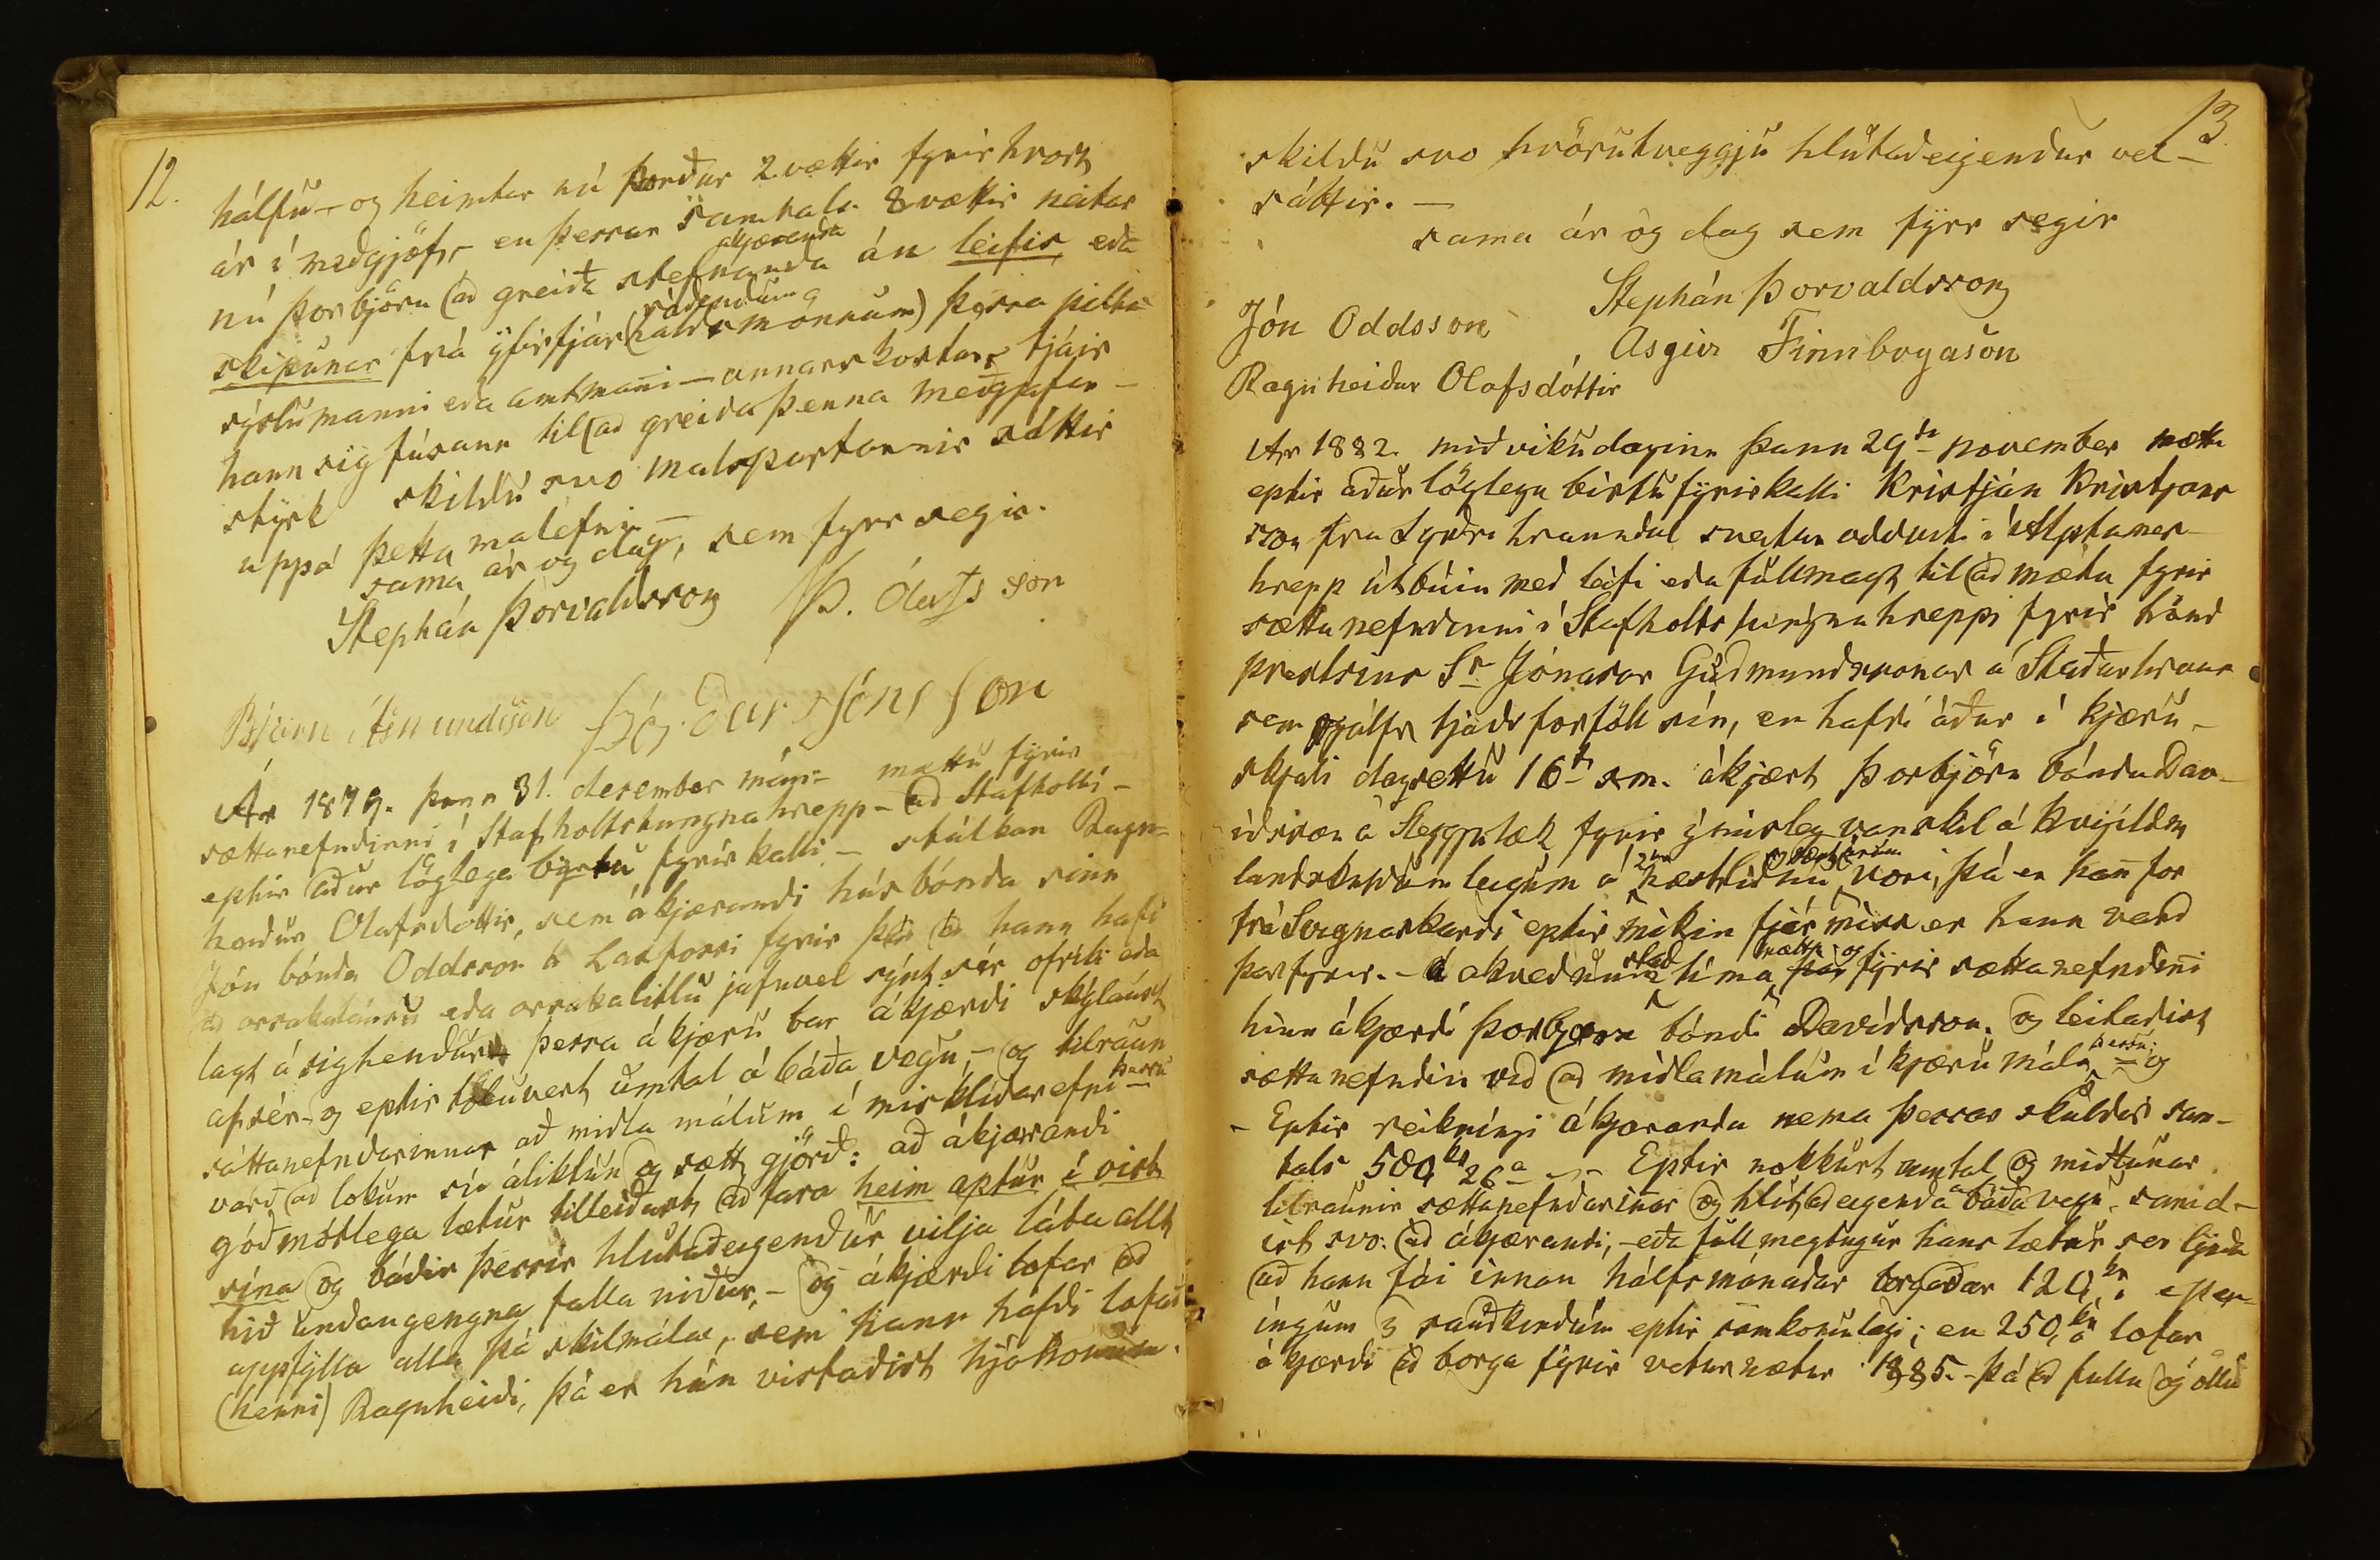 12.
hálfu – og heimtar nú Þorður 2 vættir fyrir hvort
ár í meðgjöf, – en þessar samtals 8 vættir neitar
ákjæranda
nú Þorbjörn að greiða stefnanda án leifis, eða
ráðendum
skipunar frá yfirfjár(haldsmönnum) þessa pilta
sýslumanni eða amtmani – annars kostar tjáir
hann sig fúsann til að greiða þenna meðgjafar –
styrk skildu svo malspartarnir sáttir
uppá þetta malefni –
sama ár og dag, sem fyrr segir.
Stephán Þorvaldsson Þ. Ólafsson
Bjarni Ásmundsson Þórður Jónsson
Ár 1879. þann 31. desember mán: mættu fyrir
sættanefndinni í Stafholtstungnahrepp – að Stafholti –
eptir aður löglega byrtu fyrirkalli – stúlkan Ragn-
heiður Olafsdottir, sem ákjærandi húsbónda sinn
Jón bónda Oddsson á Laxfossi fyrir það að hann hafi
að orsakalausu eða orsakalitlu jafnvel sýnt sér ofríki eða
lagt á sig hendur þessa ákjæru bar ákjærði skýlaust
af sér – og eptir töluvert umtal á báða vegu, – og tilraun
þessu
sáttanefndarinnar að miðla málum í misklíðarefni –
varð að lokum sú áliktun og sætt gjörð: að ákjærandi
góðmótlega lætur tilleiðast að fara heim aptur í vist
sína og báðir þessir hlutaðeigendur vilja láta allt
hið undangengna falla niður, – og ákjærði lofar að
uppfylla alla þá skilmála, sem hann hafði lofað
(henni) Ragnheiði, þá er hún vistaðist hjá honum.
13
skildu svo hvörutveggju hlutaðeigendur vel –
sáttir. –
sama ár og dag sem fyrr segir
Stephán Þorvaldsson
Jón Oddsson Asgeir Finnbogason
Ragnheiður Olafsdóttir
Ar 1882. miðvikudaginn þann 29da november mætti
eptir aður löglega birtu fyrirkalli Kristján Kristjans
son frá Syðri hraundal svataroddviti í Alptanes-
hrepp útbúin með leifi eða fullmagt til að mæta fyrir
sættanefndinni í Stafholtstungnahreppi fyrir hönd
prestsins Sr Jónasar Guðmundssonar á Staðarhraun
sem sjálfr tjáði forföll sín, en hafði áður í kjæru –
skjali dagsettu 16da s.m. ákjært Þorbjörn bónda Dav-
íðsson á Steggjulæk fyrir ýmisleg vanskil á
landskuldum leigum á næstliðnu vori, þá er han for
frá Svignaskarði eptir mikin fjármissir er hann varð
stað mætti og
þar fyrir. – A akveðnum tíma fyrir sættanefndini
hinn ákjærði Þorbjörn bóndi Davíðsson. og leitaðist
þessu;
sættanefndin við að miðla málum í kjæru máli – og
– Eptir reikningi ákjæranda nema þessar skuldir sam-
tals 500 kr 26 a – Eptir nokkurt umtal og miðlunar
tilraunir sættanefndarinar og hlutaðeigenda á báða vegu. samd-
ist svo: að ákjærandi, – eða fullmegtugur hans lætur ser lynda
að hann fái innan hálfs mánaðar borgaðar 120 kr í
ingum 3 sauðkindum eptir samkomulagi; en 250 kr lofar
ákjærði að borga fyrir veturnætur 1885. – þá að fullu og öllu